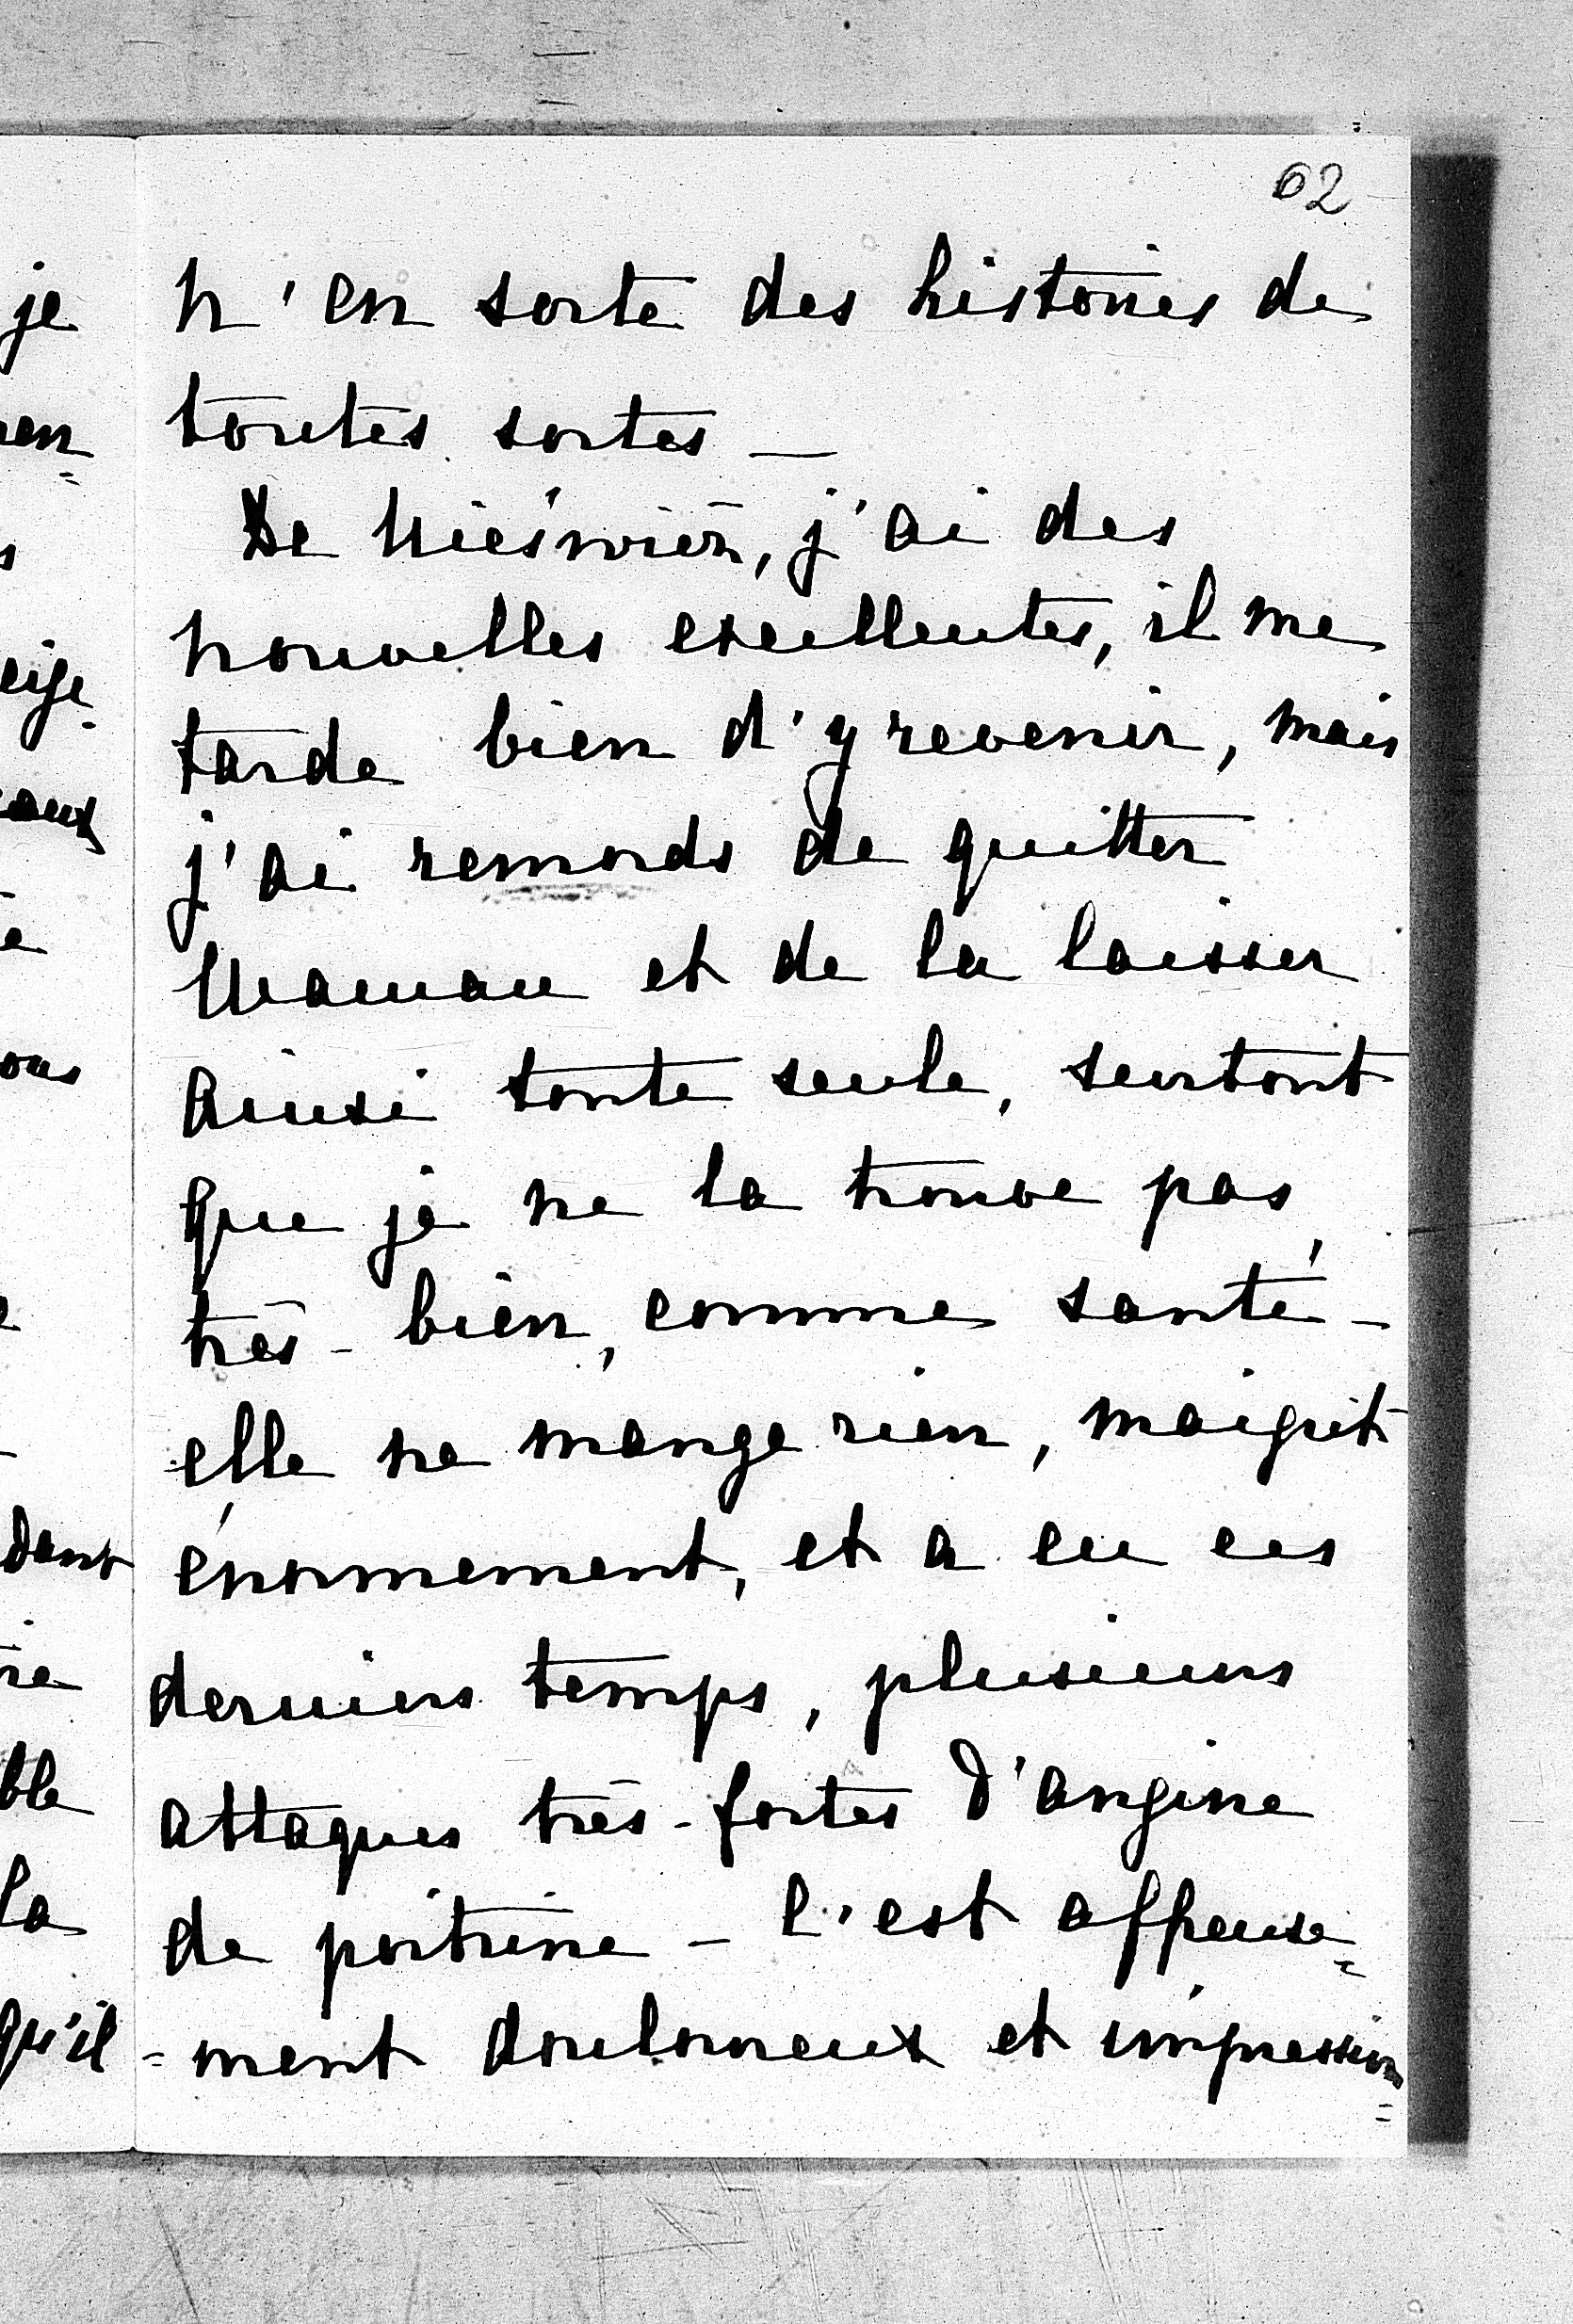 62
n'en sorte des histoires de
toutes sortes —
De Nieśwież, j'ai des
nouvelles excellentes, il me
tarde bien d'y revenir, mais
j'ai remords de quitter
Maman et de la laisser
ainsi toute seule, surtout
que je ne la trouve pas,
très-bien, comme santé -
elle ne mange rien, maigrit
énormement, et a eu ces
derniers temps, plusieurs
attaques très-fortes d'angine
de poitrine - C'est affreuse=
=ment douloureux et impression=
je
en=
s
eige
eaux
e
ous
e
dant
re
ble
la
qu'il